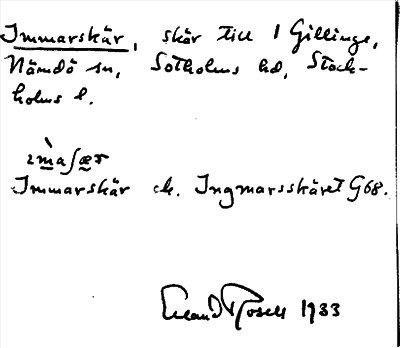 Immarskär, skär till 1 Gillinge,
Nämdö sn, Sotholms hd, Stock-
holms l.
ɪ̀maʃær
Immarskär ek. Ingmarsskäret G68.
Erland Rosell 1933